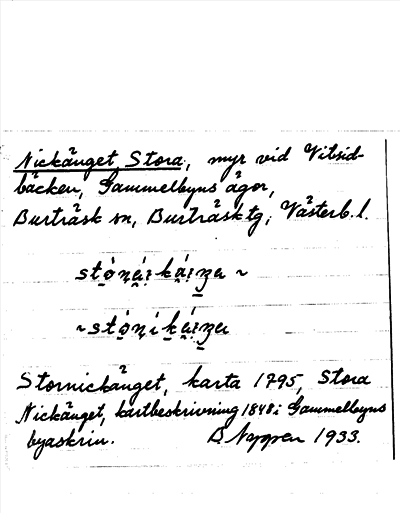 Nickänget, Stora, myr vid Vitsid-
bäcken, Gammelbyns ägor,
Burträsk sn, Burträsk tg, Västerb. l.
Stornickänget, karta 1795, Stora
Nickänget, kartbeskrivning 1848 i Gammelbyns
byaskrin. Nygren 1933.